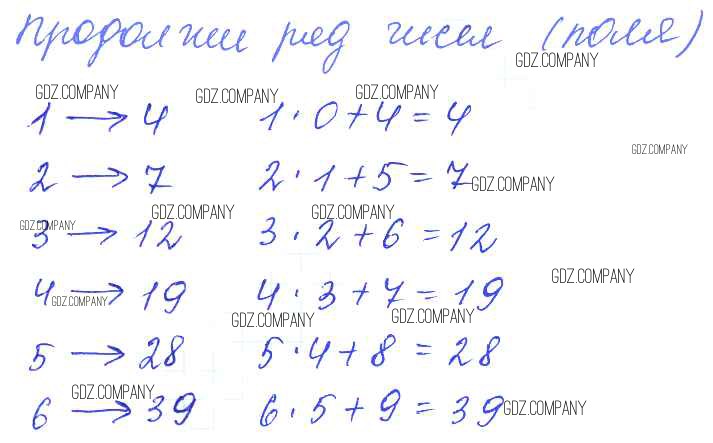 Продолжи ряд чисел (поля)
GDZ.COMPANY
GDZ.COMPANY GDZ.COMPANY GDZ.COMPANY
1 → 4 1·0+4=4
GDZ.COMPANY
2 → 7 2·1+5=7 GDZ.COMPANY
GDZ.COMPANY GDZ.COMPANY GDZ.COMPANY
3 → 12 3·2+6=12
GDZ.COMPANY
4 → 19 4·3+7=19
GDZ.COMPANY
GDZ.COMPANY GDZ.COMPANY
5 → 28 5·4+8=28
GDZ.COMPANY
6 → 39 6·5+9=39 GDZ.COMPANY